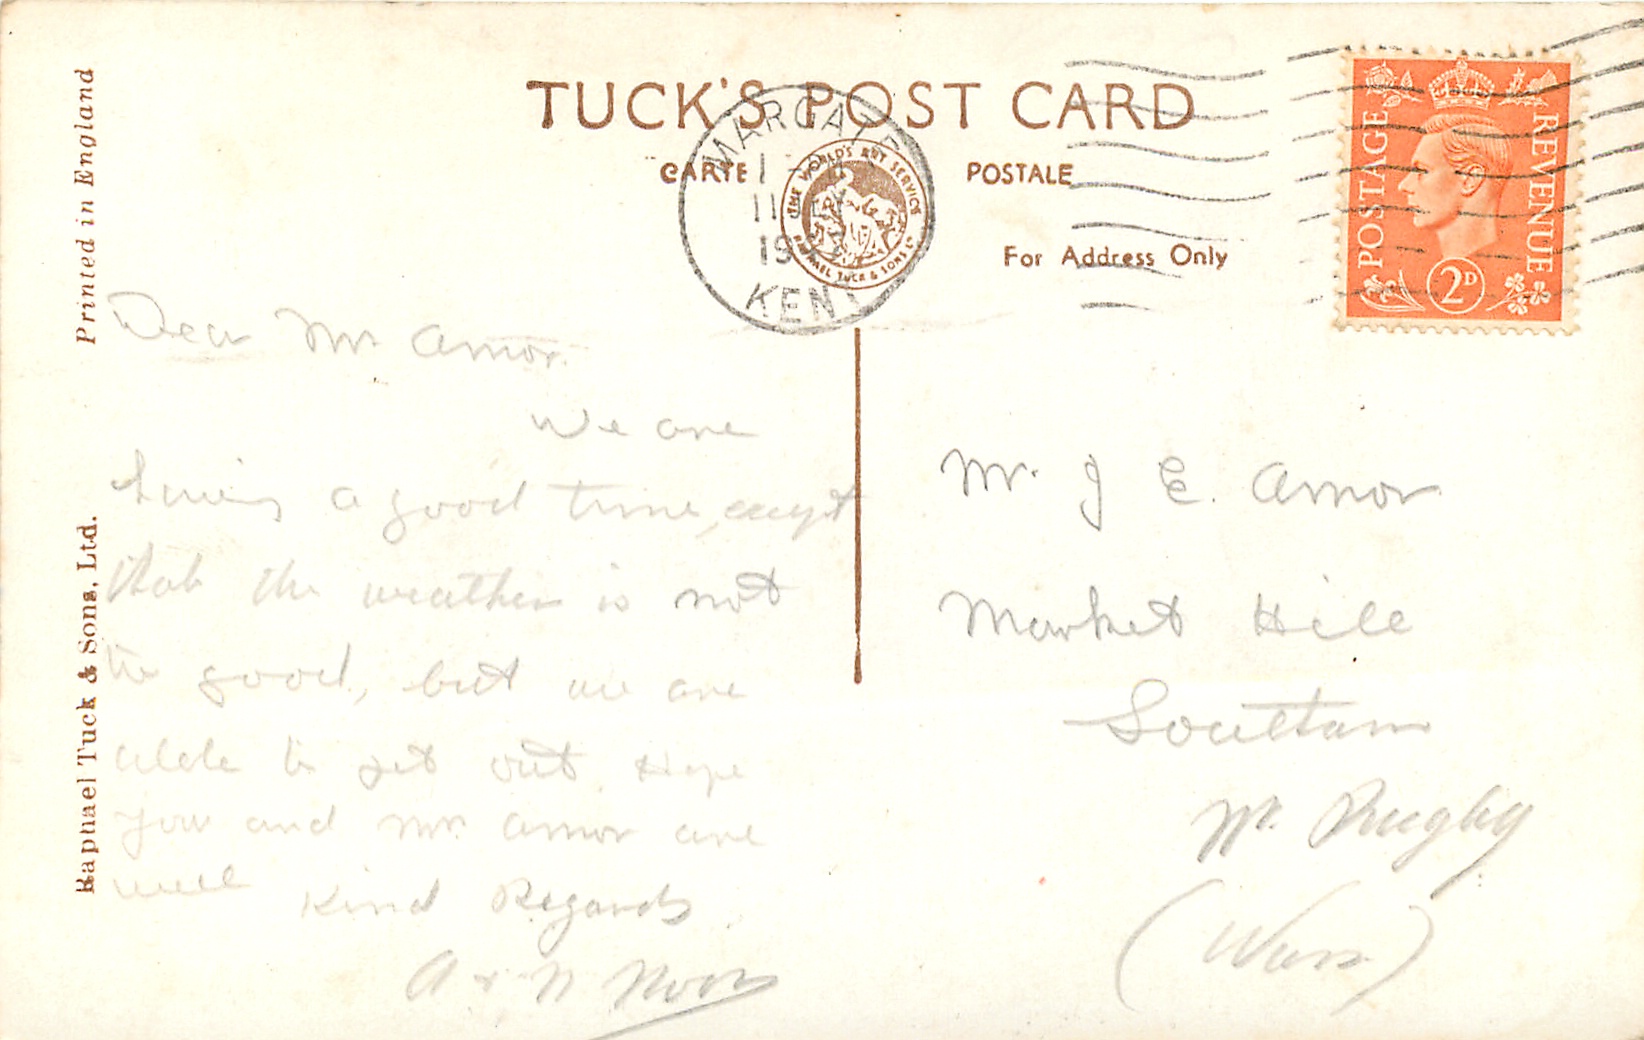 TUCK'S POST CARD
CARTE POSTALE
For Address Only
THE WORLD'S ART SERVICE
RAPHAEL TUCK & SONS LTD
MARGATE
KENT
POSTAGE
REVENUE
2D
Printed in England
Raphael Tuck & Sons, Ltd.
Dear Mr Amor.
We are
having a good time, except
that the weather is not
to good, but we are
able to get out. Hope
you and Mr Amor are
well Kind Regards
A & N
Mr. J E. Amor
Market Hill
Southam
Nr. Rugby
(Wars)